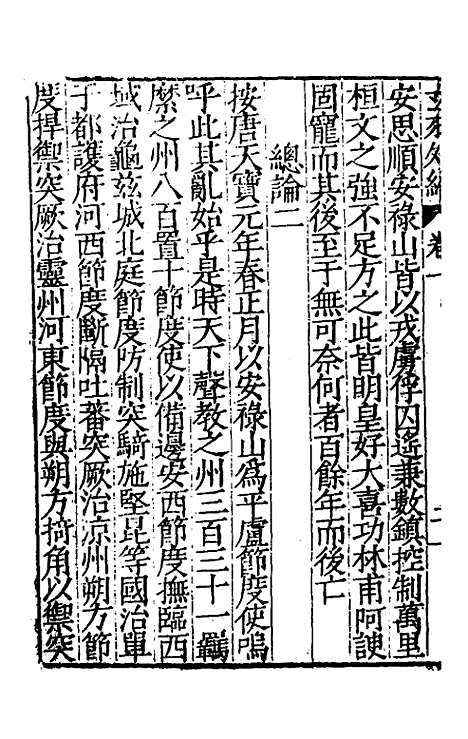 卷一
安思順安祿山皆以戎虜俘囚遙兼數鎮控制萬里
桓文之強不足方之此皆明皇好大喜功林甫阿諛
固寵而其後至于無可奈何者百餘年而後亡
總論二
按唐天寶元年春正月以安祿山為平盧節度使嗚
呼此其亂始乎是時天下聲教之州三百三十一羈
縻之州八百置十節度使以備邊安西節度撫臨西
域治龜茲城北庭節度防制突騎施堅昆等國治單
于都護府河西節度斷隔吐蕃突厥治凉州朔方節
度捍禦突厥治靈州河東節度與朔方掎角以禦突